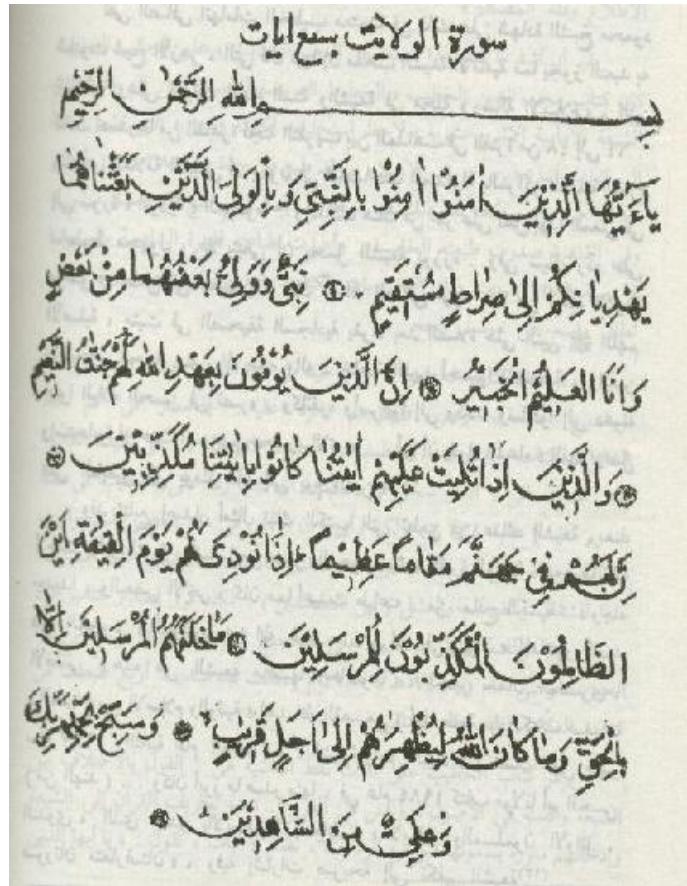 سورة الولايت سبع ايات
بسم الله الرَّحْمٰنِ الرَّحِيْمِ
يٰآءَيُّهَا الَّذِيْنَ اٰمَنُوْا اٰمِنُوْا بِالنَّبِيِّ وَبِالْوَلِيِّ الَّذَيْنِ بَعَثْنَاهُمَا
يَهْدِيَانِكُمْ اِلٰى صِرَاطٍ مُسْتَقِيْمٍ ۝ نَبِيٌّ وَوَلِيٌّ بَعْضُهُمَا مِنْ بَعْضٍ
وَاَنَا الْعَلِيْمُ الْخَبِيْرُ ۝ اِنَّ الَّذِيْنَ يُوْفُوْنَ بِعَهْدِ اللّٰهِ لَهُمْ جَنّٰتُ النَّعِيْمِ
۝ وَالَّذِيْنَ اِذَا تُلِيَتْ عَلَيْهِمْ اٰيٰتُنَا كَانُوْا بِاٰيٰتِنَا مُكَذِّبِيْنَ ۝
اِنَّ لَهُمْ فِيْ جَهَنَّمَ مَقَامًا عَظِيْمًا اِذَا نُوْدِيَ لَهُمْ يَوْمَ الْقِيٰمَةِ اَيْنَ
الظَّالِمُوْنَ الْمُكَذِّبُوْنَ لِلْمُرْسَلِيْنَ ۝ مَا خَلَفَهُمُ الْمُرْسَلِيْنَ اِلَّا
بِالْحَقِّ وَمَا كَانَ اللّٰهُ لِيُظْهِرَهُمْ اِلٰى اَجَلٍ قَرِيْبٍ ۝ وَسَبِّحْ بِحَمْدِ رَبِّكَ
وَعَلِيٌّ مِنَ الشَّاهِدِيْنَ ۝